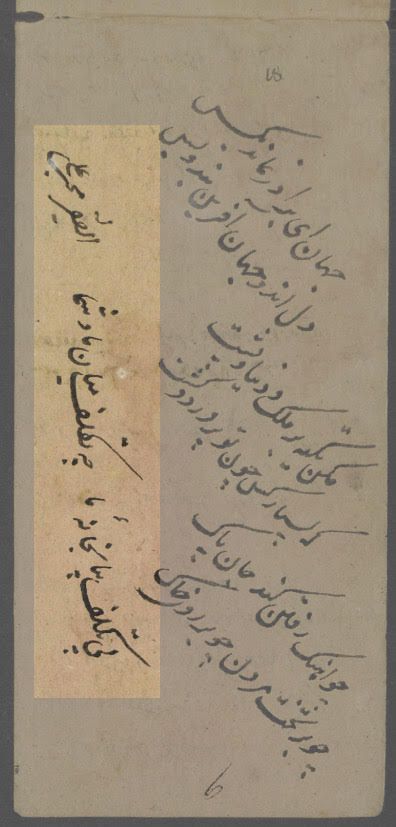 جهان ای برادر نماند بکس
دل اندر جهان آفرین بند و بس
مکن تکیه بر ملک و دنیا و پشت
که بسیار کس چون تو پرورد و کشت
چو آهنگ رفتن کند جان پاک
چه بر تخت مردن چه بر روی خاک
بی تکلف بیا بخانهٔ ما چه تکلف میان ما و شما
الفقیر محمد علی